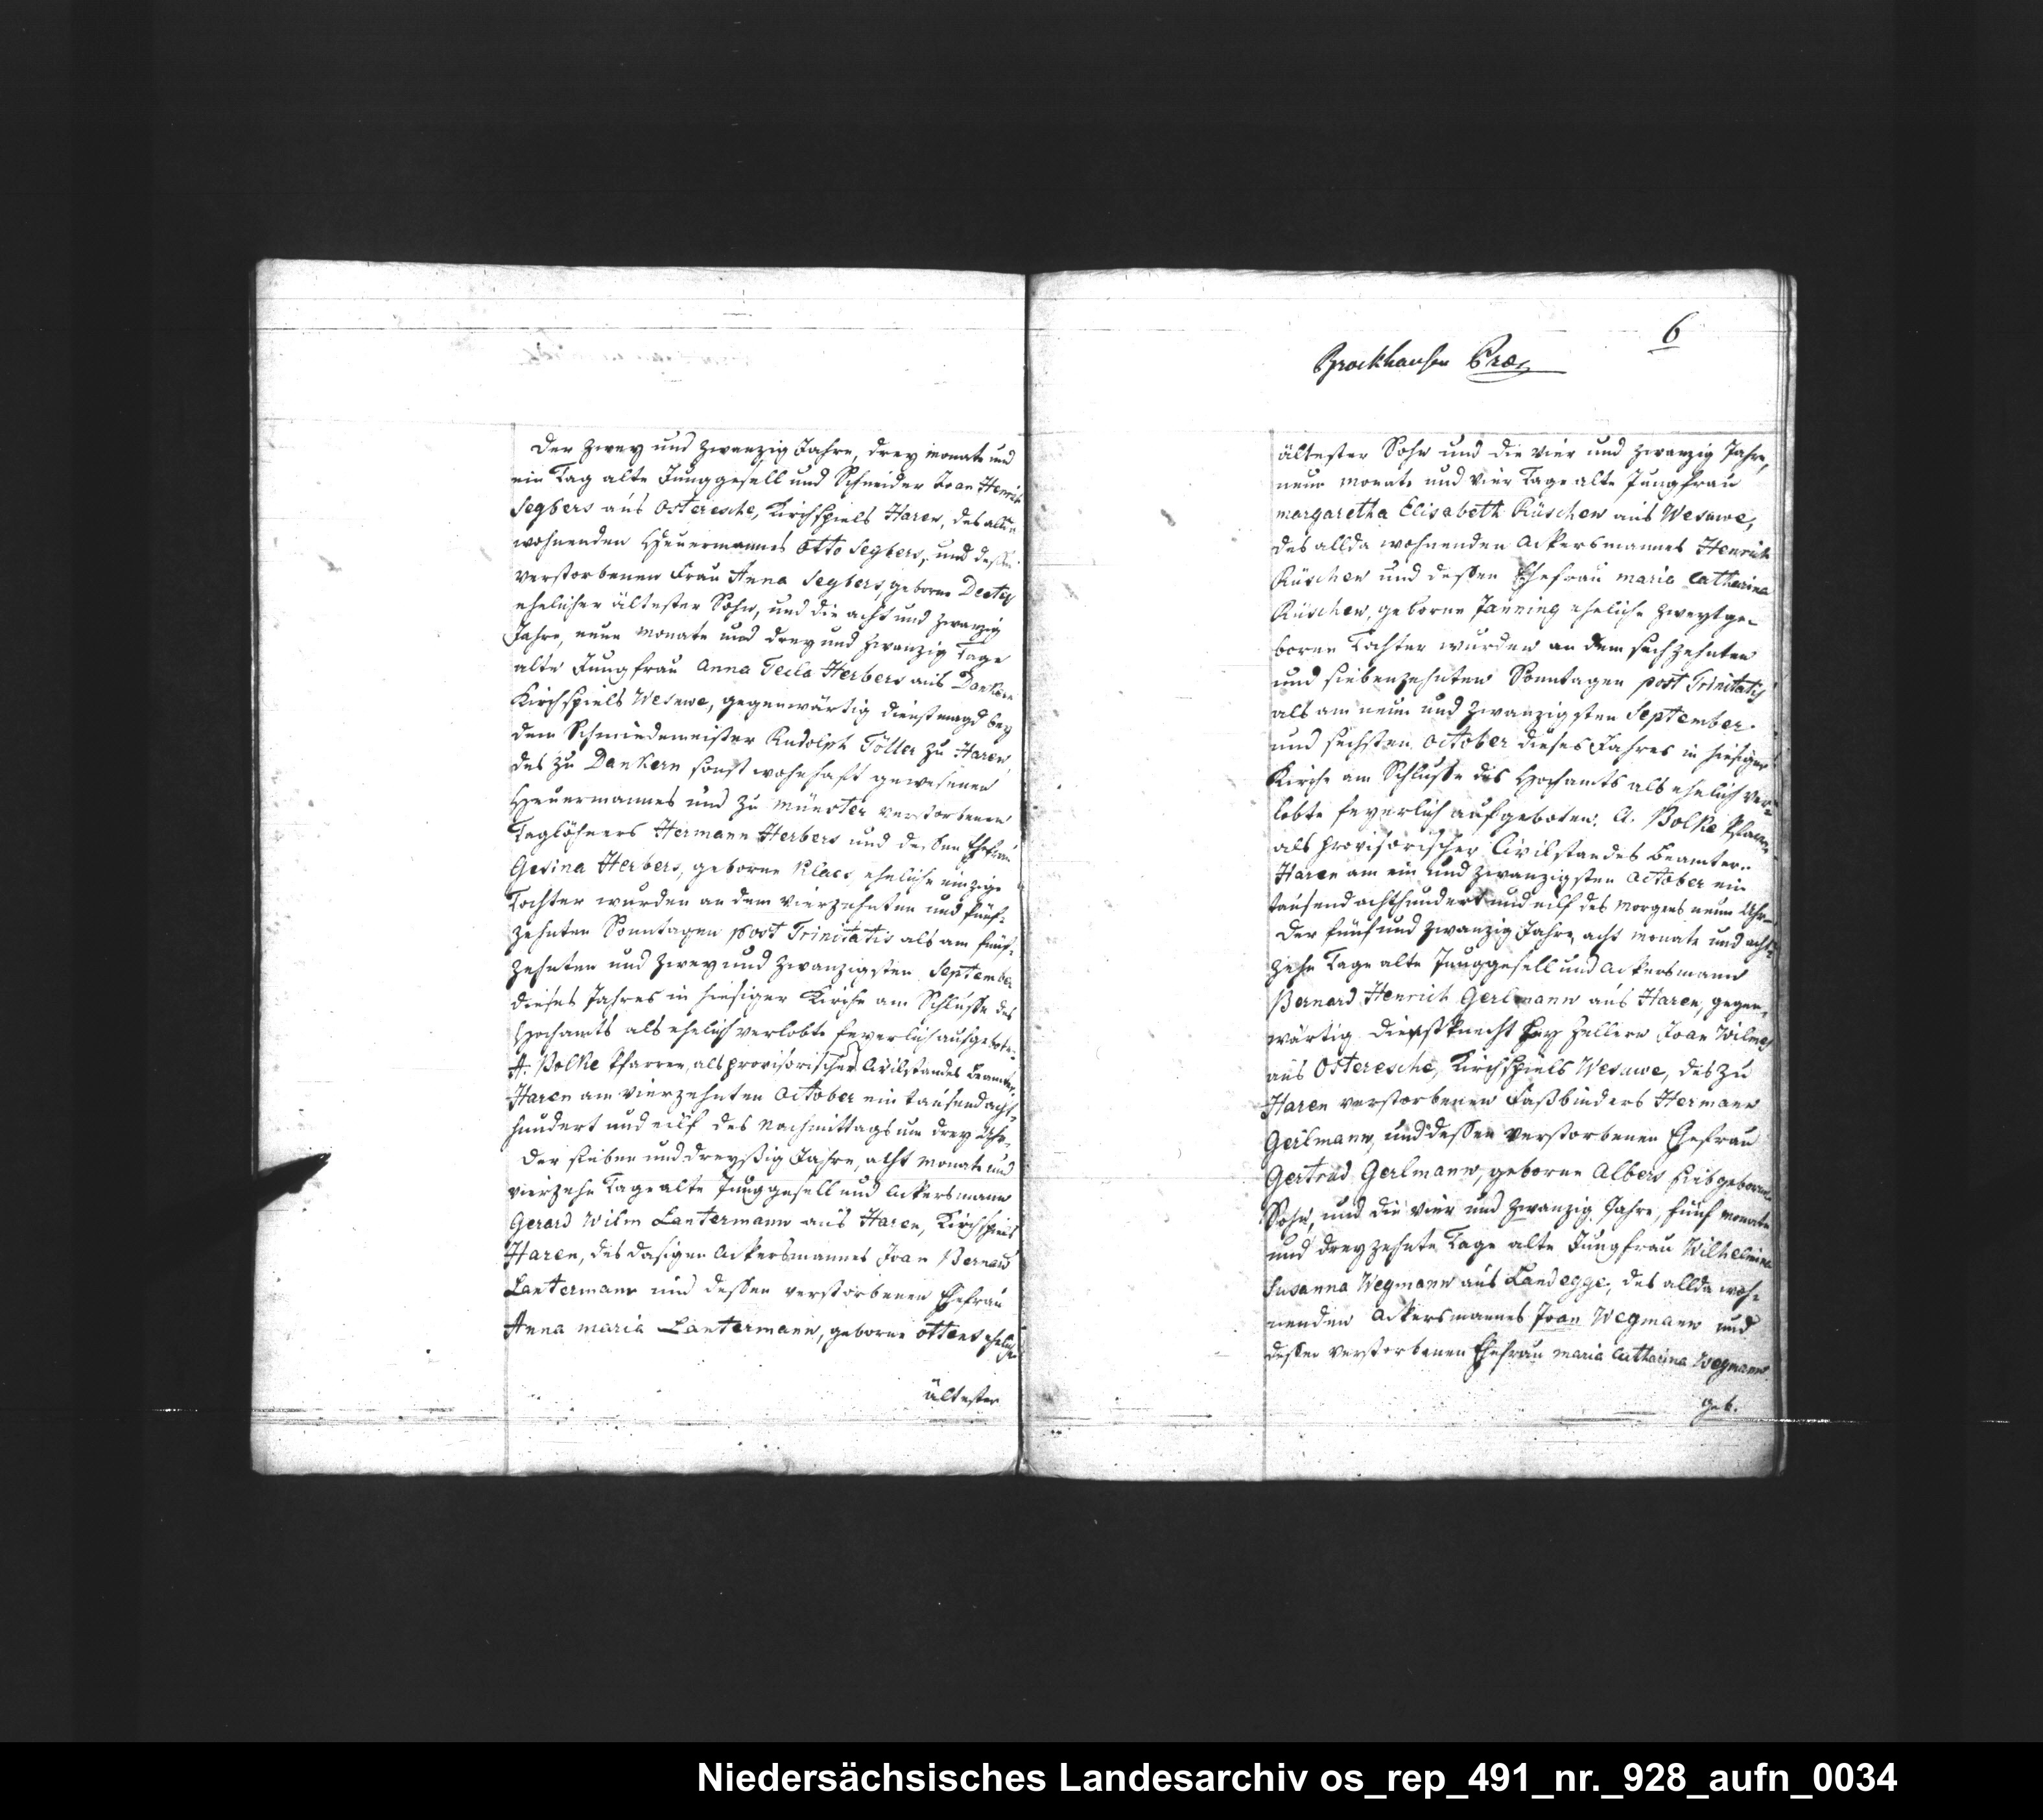 Der zwey und zwanzig Jahre, drey Monate und
ein Tag alte Junggesell und Schneider Joan Henrich
Segbers aus Osteresche, Kirchspiels Haren, des allda
wohnenden Heuermannes Otto Segbers, und dessen
verstorbenen Frau Anna Segbers, geborne
ehelicher ältester Sohn, und die acht und zwanzig
Jahre, neun Monate und drey und zwanzig Tage
alte Jungfrau Anna Tecla Herbers aus Dankern
Kirchspiels Wesuwe, gegenwärtig Dienstmagd bey
dem Schmiedemeister Rudolph Töller zu Haren,
des zu Dankern sonst wohnhaft gewesenen
Heuermannes und zu Münster verstorbenen
Taglöhners Hermann Herbers und dessen Ehefrau
Gesina Herbers, geborne Klaes eheliche einzige
Tochter wurden an dem vierzehnten und fünf-
zehnten Sonntagen post Trinitatis als am fünf-
zehnten und zwey und zwanzigsten September
dieses Jahres in hiesiger Kirche am Schlusse des
Hochamts als ehelich verlobte feyerlich aufgeboten.
A. Bolke Pfarrer, als provisorischer Civilstandes Beamter.
Haren am vierzehnten October ein tausend acht-
hundert und eilf des Nachmittags um drey Uhr.
Der sieben und dreyßig Jahre, acht Monate und
vierzehn Tage alte Junggesell und Ackersmann
Gerard Wilm Lantermann aus Haren, Kirchspiels
Haren, des dasigen Ackersmannes Joan Bernard
Lantermann und dessen verstorbenen Ehefrau
Anna Maria Lantermann, geborne Ottens ehelicher
ältester
6
Brockhausen Præs
ältester Sohn und die vier und zwanzig Jahre,
neun Monate und vier Tage alte Jungfrau
Margaretha Elisabeth Rüschen aus Wesuwe,
des allda wohnenden Ackersmannes Henrich
Rüschen und dessen Ehefrau Maria Catharina
Rüschen, geborne Janning eheliche zweytge-
borne Tochter wurden an dem sechzehnten
und siebenzehnten Sonntagen post Trinitatis
als am neun und zwanzigsten September
und sechsten October dieses Jahres in hiesiger
Kirche am Schlusse des Hochamts als ehelich ver-
lobte feyerlich aufgeboten. A. Bolke Pfarrer
als provisorischer Civilstandes Beamter.
Haren am ein und zwanzigsten October ein
tausend achthundert und eilf des Morgens neun Uhr.
Der fünf und zwanzig Jahre, acht Monate und acht-
zehn Tage alte Junggesell und Ackersmann
Bernard Henrich Gerlmann aus Haren, gegen-
wärtig Dienstknecht bey Zellern Joan Wilmes
aus Osteresche, Kirchspiels Wesuwe, des zu
Haren verstorbenen Faßbinders Hermann
Gerlmann, und dessen verstorbenen Ehefrau
Gertrud Gerlmann, geborne Albers
Sohn, und die vier und zwanzig Jahre, fünf Monate
und dreyzehnte Tage alte Jungfrau Wilhelmina
Susanna Wegmann aus Landegge, des allda woh-
nenden Ackersmannes Joan Wegmann und
dessen verstorbenen Ehefrau Maria Catharina Wegmann
geb.
Niedersächsisches Landesarchiv os_rep_491_nr._928_aufn_0034